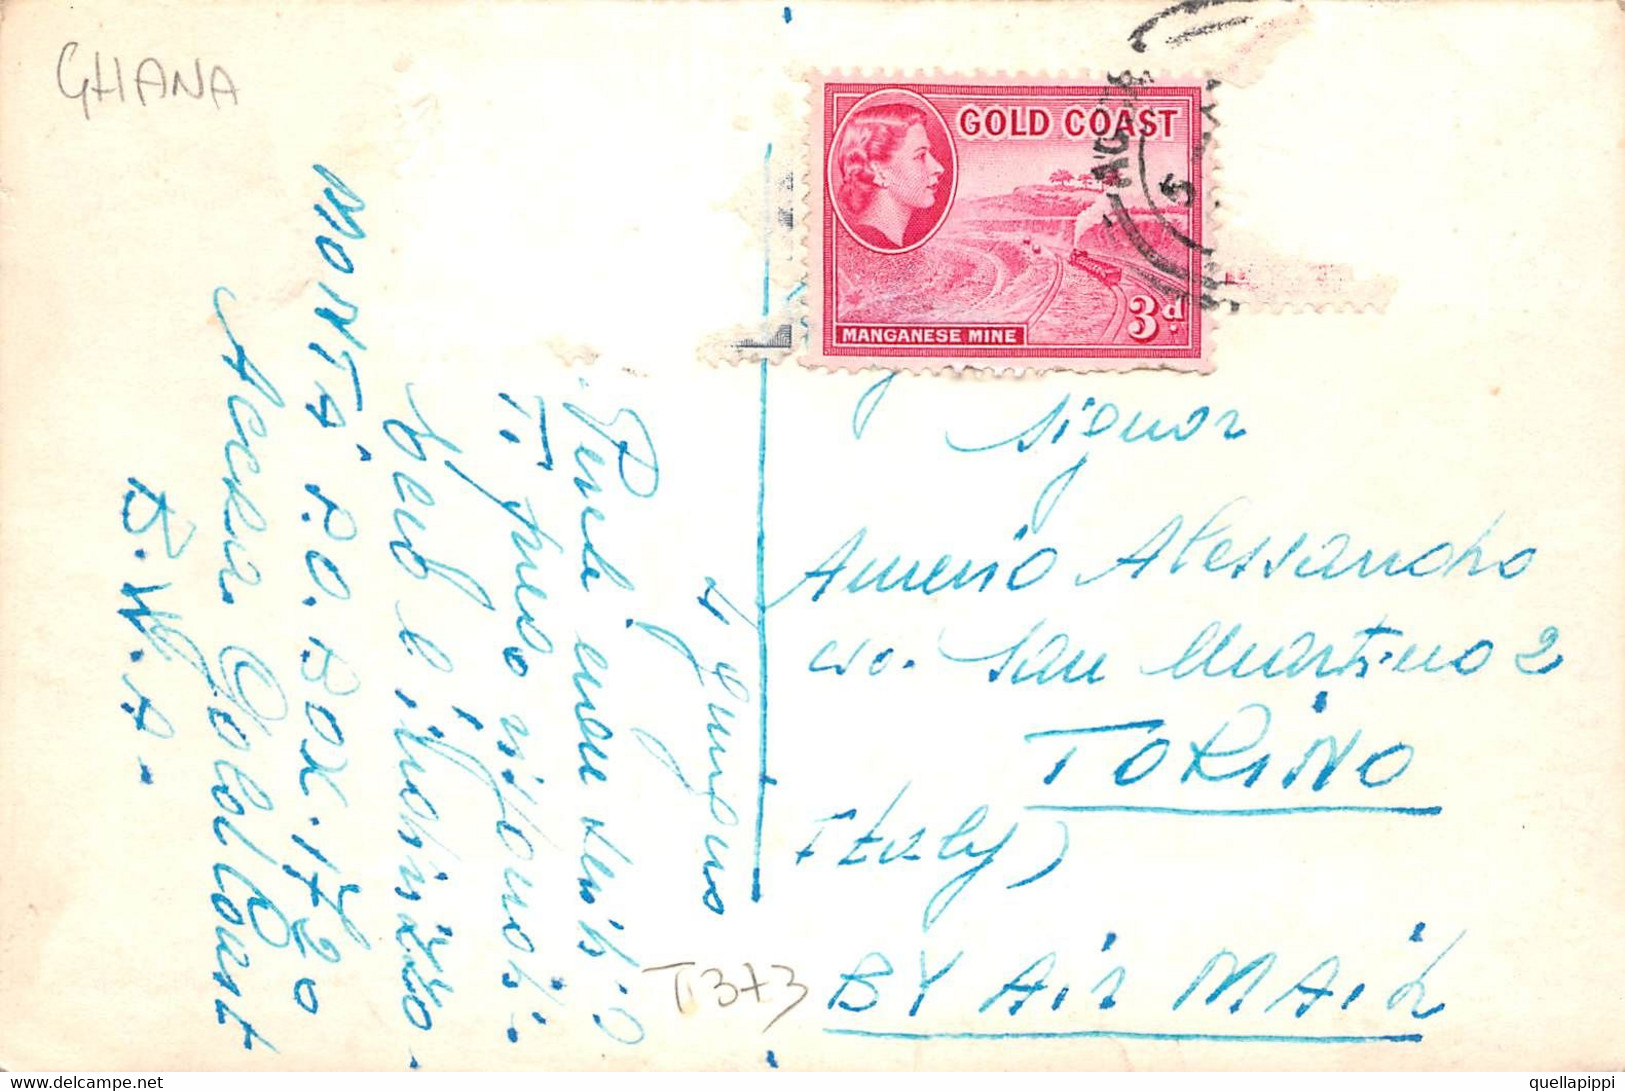 GHANA
GOLD COAST
MANGANESE MINE
3d.
4 giugno
T. prego
Ecco l'indirizzo.
MONTA P.O. BOX. 1720
Accra Gold Coast
B.W.A.
Signor
Amerio Alessandro
cso. San Martino 2
TORINO
Italy
BY Air MAIL
T 373
delcampe.net
quellapippi